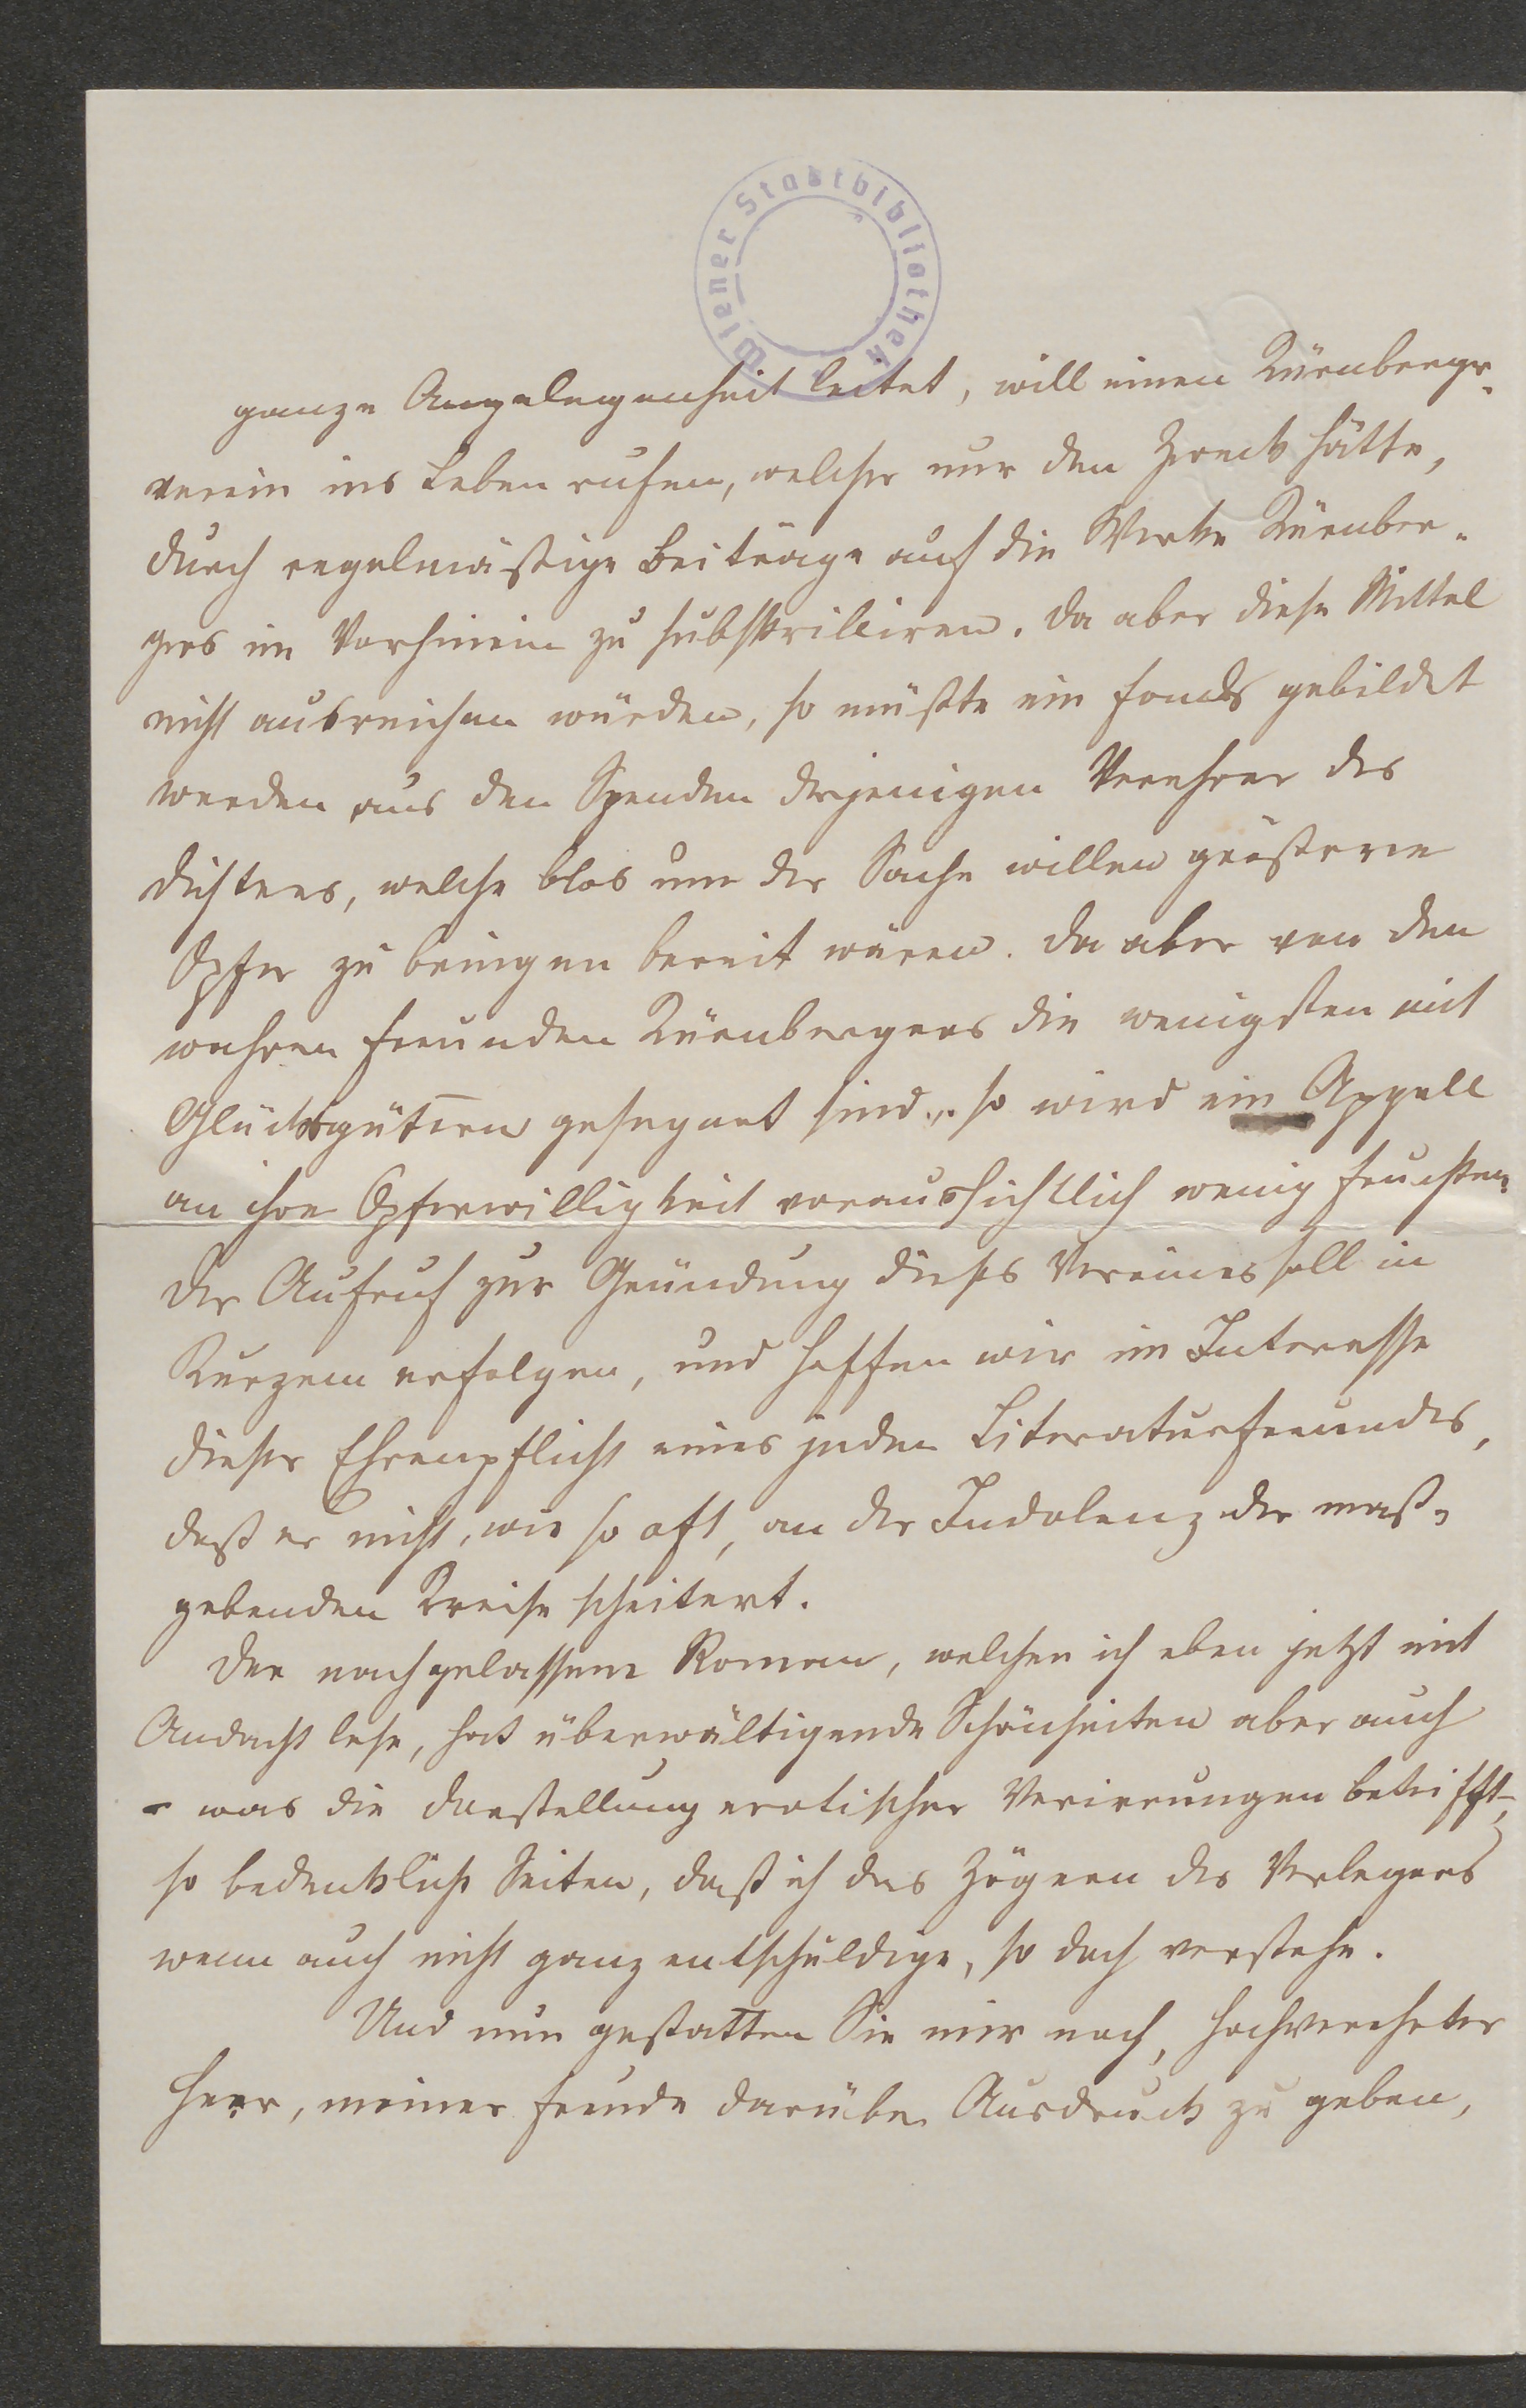 Wiener Stadtbibliothek
ganze Angelegenheit leitet, will einen Kürnberger-
verein ins Leben rufen, welcher nur den Zweck hätte,
durch regelmäßige Beiträge auf die Werke Kürnber-
gers im Vorhinein zu subskribiren. Da aber diese Mittel
nicht ausreichen würden, so müßte ein Fonds gebildet
werden aus den Spenden derjenigen Verehrer des
Dichters, welche blos um der Sache willen größere
Opfer zu bringen bereit wären. Da aber von den
wahren Freunden Kürnbergers die wenigsten mit
Glücksgütern gesegnet sind, so wird ein Appell
an ihre Opferwilligkeit voraussichtlich wenig fruchten.
Der Aufruf zur Gründung dieses Vereines soll in
Kurzem erfolgen, und hoffen wir im Interesse
dieser Ehrenpflicht eines jeden Literaturfreundes,
daß er nicht, wie so oft, an der Indolenz der maß-
gebenden Kreise scheitert.
Der nachgelassene Roman, welchen ich eben jetzt mit
Andacht lese, hat überwältigende Schönheiten aber auch
- was die Darstellung erotischer Verirrungen betrifft -,
so bedenkliche Seiten, daß ich das Zögern des Verlegers
wenn auch nicht ganz entschuldige, so doch verstehe.
Und nun gestatten Sie mir noch, hochverehrter
Herr, meiner Freude darüber Ausdruck zu geben,